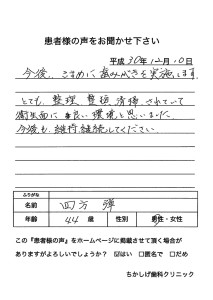 患者様の声をお聞かせ下さい
平成 30年 12月 10日
今後、こまめに歯みがきを実施します。
とても、整理、整頓、清掃、されていて
衛生面に 良い環境と思いました。
今後も、維持継続してください。
ふりがな
名前 四方 弾
年齢 44 歳 性別 男性・女性
この『患者様の声』をホームページに掲載させて頂く場合が
ありますがよろしいでしょうか? ☑はい □匿名で □だめ
ちかしげ歯科クリニック